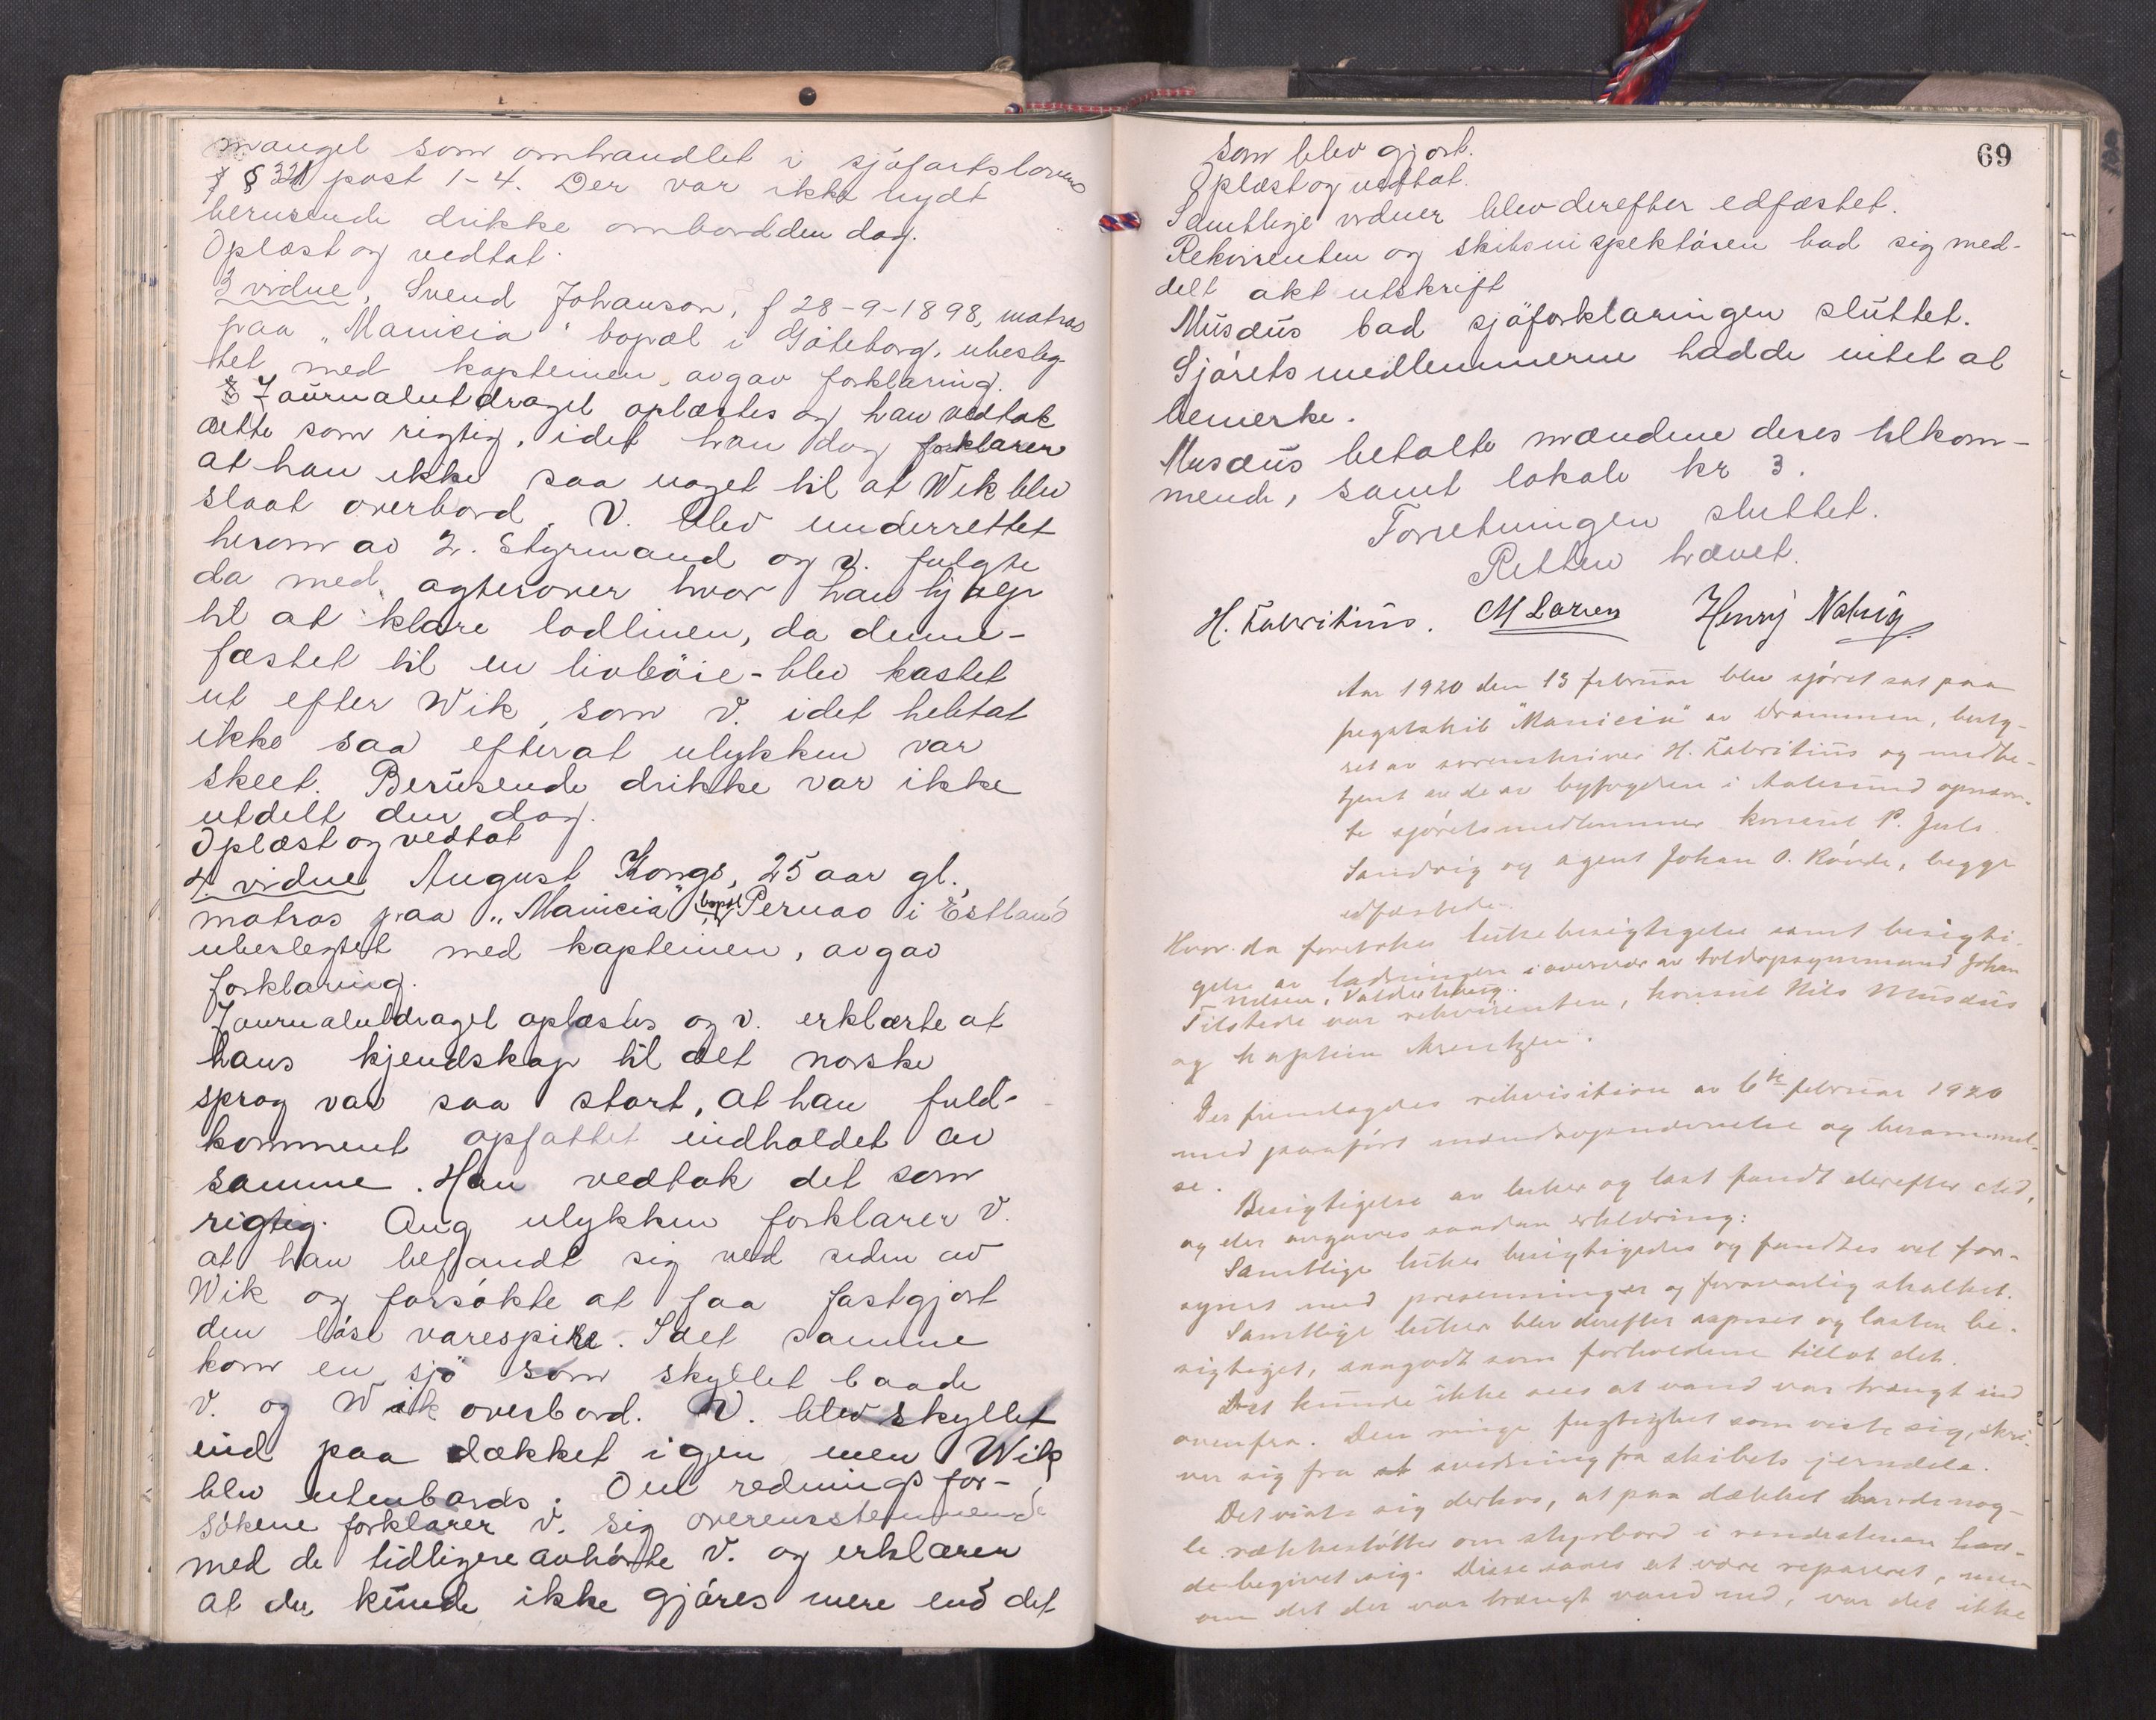 mangel som omhandlet i sjøfartslovens
§ 321 post 1-4. Der var ikke nydt
berusende drikke ombord den dag.
Oplæst og vedtat.
3 vidne, Svend Johanson, f 28-9-1898, matros
paa "Manicia" bopæl i Göteborg, ubesleg-
tet med kapteinen, avgav forklaring.
Journalutdraget oplæstes og han vedtok
dette som rigtig, idet han dog forklarer
at han ikke saa noget til at Wik blev
slaat overbord. V. blev underrettet
herom av 2. Styrmand og v. fulgte
da med agterover hvor han hjalp
til at klare lodlinen, da denne-
fæstet til en livböie - blev kastet
ut efter Wik, som V. idet heletat
ikke saa efterat ulykken var
skeet. Berusende drikke var ikke
utdelt den dag.
Oplæst og vedtat
4 vidne August Kongs, 25 aar gl.,
matros paa "Manicia" bopæl Pernao i Estland
ubeslegtet med kapteinen, avgav
forklaring.
Journalutdraget oplæstes og v. erklærte at
hans kjendskap til det norske
sprog var saa stort, at han fuld-
komment opfattet indholdet av
samme. Han vedtok det som
rigtig. Ang ulykken forklarer V.
at han befandt sig ved siden av
Wik og forsökte at faa fastgjort
den löse varespire. I det samme
kom en sjö som skyllet baade
V. og Wik overbord. V. blev skyllet
ind paa dækket igjen men Wik
blev utenbords. Om rednings for-
sökene forklarer V. sig overensstemmende
med de tidligere avhörte V. og erklærer
at der kunde ikke gjöres mere end det
69
som blev gjort.
Oplæst og vedtat.
Samtlige vidner blev derefter edfæstet.
Rekvirenten og skibsinspektören bad sig med-
delt aktutskrift
Musæus bad sjöforklaringen sluttet.
Sjörets medlemmerne hadde intet at
bemerke.
Musæus betalte mændene deres tilkom-
mende, samt lokale kr 3.
Forretningen sluttet.
Retten hævet.
H. Fabritius. M Larsen Henry Natvig
Aar 1920 den 13 februar blev sjöret sat paa
fregatskib "Manicia" av Drammen, besty-
ret av sorenskriver H. Fabritius og medbe-
tjent av de av byfogden i Aalesund opnævn-
te sjöretsmedlemmer konsul P. Juls.
Sandvig og agent Johan O. Rövde, begge
edfæstede.
Hvor da foretokes lukebesigtigelse samt besigti-
gelse av ladningen i overvær av toldopsynsmand Johan
Nilsen, Valderhaug.
Tilstede var rekvirenten, konsul Nils Musæus
og kaptein Arentzen.
Der fremlagdes rekvisition av 6te februar 1920
med paaført mændsopnævnelse og berammel-
se.
Besigtigelse av luker og last fandt derefter sted,
og der avgaves saadan erklæring:
Samtlige luker besigtigedes og fandtes vel for-
synet med presenninger og forsvarlig skalket.
Samtlige luker blev derefter aapnet og lasten be-
sigtiget, saagodt som forholdene tillot det.
Det kunde ikke sees at vand var trængt ind
ovenfra. Den ringe fugtighet som viste sig, skri-
ver sig fra svedning fra skibets jerndele.
Det viste sig derhos, at paa dækket hadde nog-
le rækkestötter om styrbord i vandestenen had-
de begivet sig. Disse saaes at være reparert, men
om det der var trængt vand ned, var det ikke